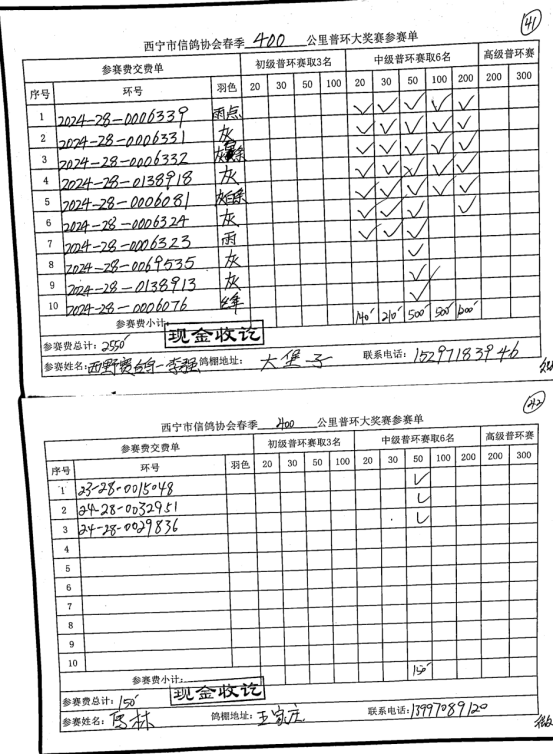 41
西宁市信鸽协会春季 400 公里普环大奖赛参赛单
参赛费交费单 初级普环赛取3名 中级普环赛取6名 高级普环赛
序号 环号 羽色 20 30 50 100 20 30 50 100 200 200 300
1 2024-28-0006339 雨点 ✓ ✓ ✓ ✓ ✓
2 2024-28-0006331 灰 ✓ ✓ ✓ ✓ ✓
3 2024-28-0006332 ✓ ✓ ✓ ✓ ✓
4 2024-28-0138918 灰 ✓ ✓ ✓ ✓ ✓
5 2024-28-0006081 ✓ ✓ ✓ ✓ ✓
6 2024-28-0006324 灰 ✓ ✓ ✓ ✓
7 2024-28-0006323 雨 ✓ ✓ ✓
8 2024-28-0069535 灰 ✓
9 2024-28-0138913 灰 ✓
10 2024-28-0006076 ✓
参赛费小计: 140 210 500 500 1200
参赛费总计: 2550 现金收讫
参赛姓名: 西野赛鸽-李强 鸽棚地址: 大堡子 联系电话: 15297183946
42
西宁市信鸽协会春季 400 公里普环大奖赛参赛单
参赛费交费单 初级普环赛取3名 中级普环赛取6名 高级普环赛
序号 环号 羽色 20 30 50 100 20 30 50 100 200 200 300
1 23-28-0015048 ✓
2 24-28-0032951 ✓
3 24-28-0029836 ✓
4
5
6
7
8
9
10
参赛费小计: 150
参赛费总计: 150 现金收讫
参赛姓名: 马林 鸽棚地址: 王家庄 联系电话: 13997089120